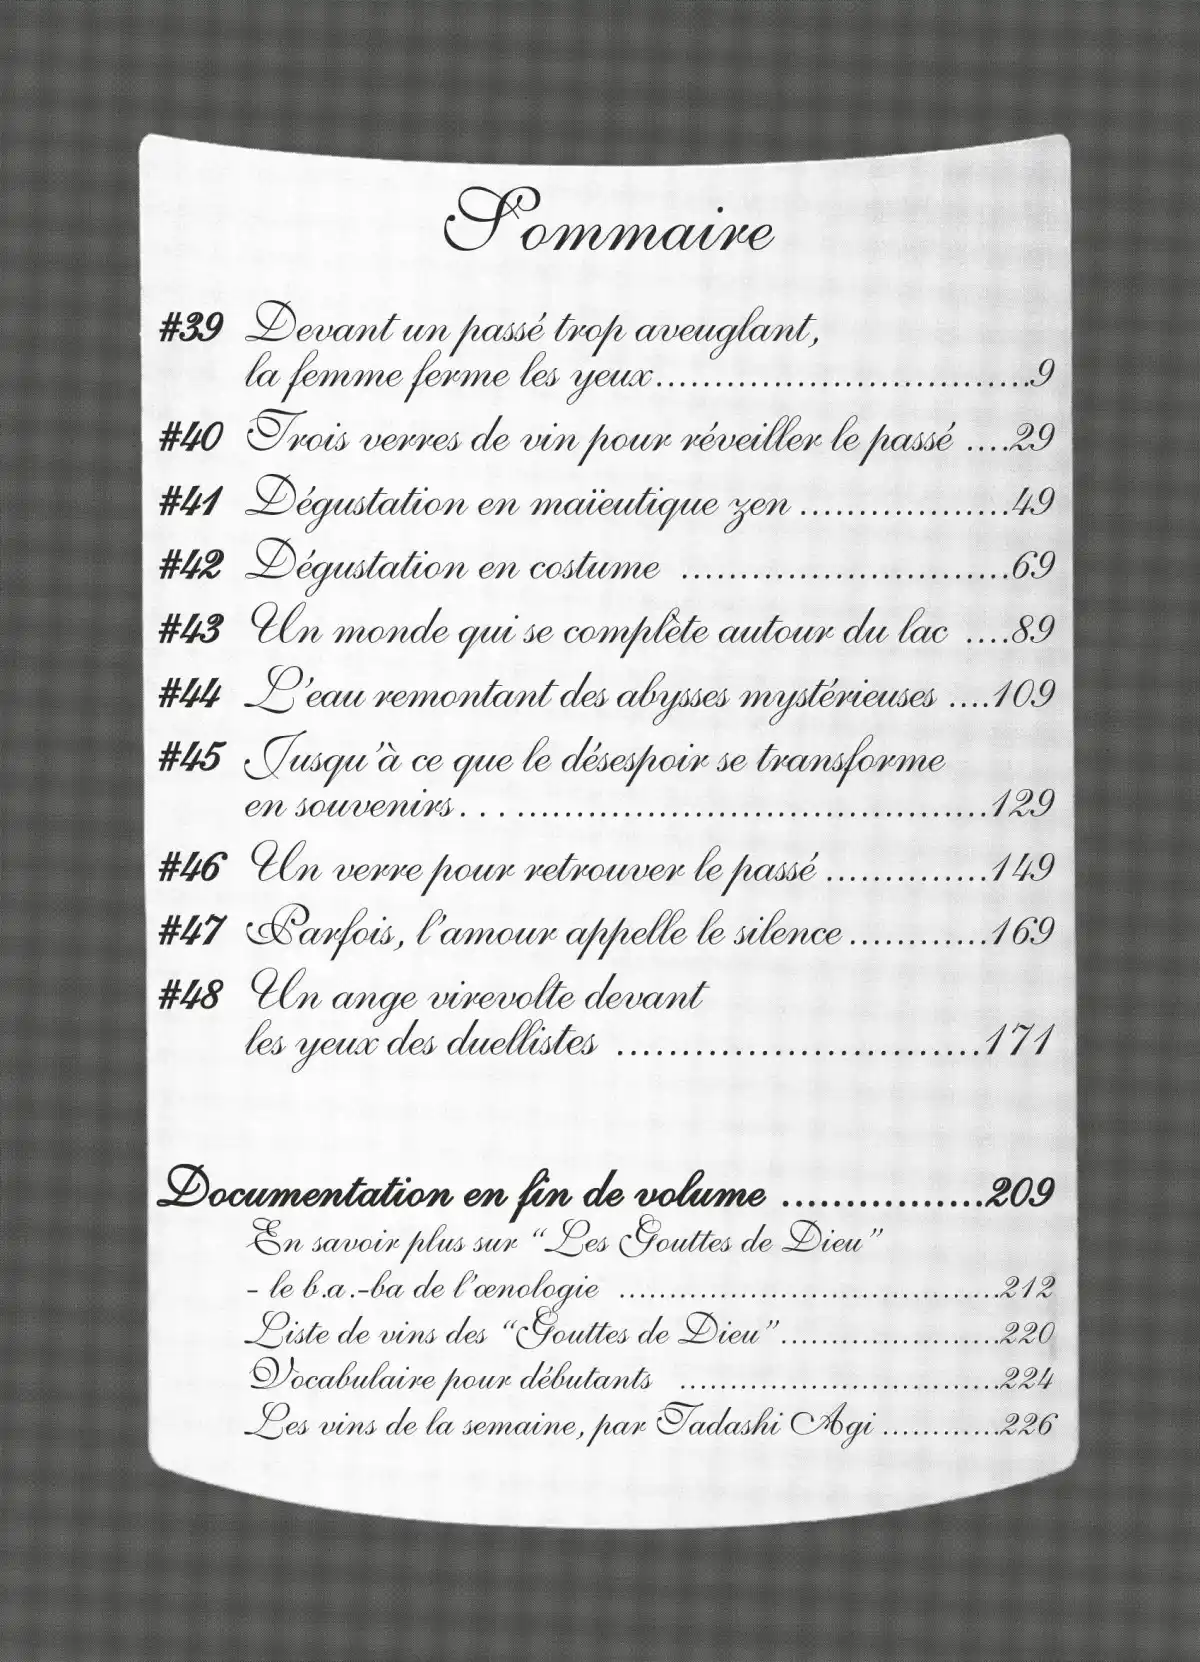 Sommaire
#39 Devant un passé trop aveuglant,
la femme ferme les yeux................................9
#40 Trois verres de vin pour réveiller le passé ....29
#41 Dégustation en maïeutique zen ..................49
#42 Dégustation en costume ............................69
#43 Un monde qui se complète autour du lac ....89
#44 L'eau remontant des abysses mystérieuses ....109
#45 Jusqu'à ce que le désespoir se transforme
en souvenirs... ........................................129
#46 Un verre pour retrouver le passé ..............149
#47 Parfois, l'amour appelle le silence............169
#48 Un ange virevolte devant
les yeux des duellistes ............................171
Documentation en fin de volume ................209
En savoir plus sur "Les Gouttes de Dieu"
- le b.a.-ba de l'œnologie ......................................212
Liste de vins des "Gouttes de Dieu"......................220
Vocabulaire pour débutants ................................224
Les vins de la semaine, par Tadashi Agi ............226